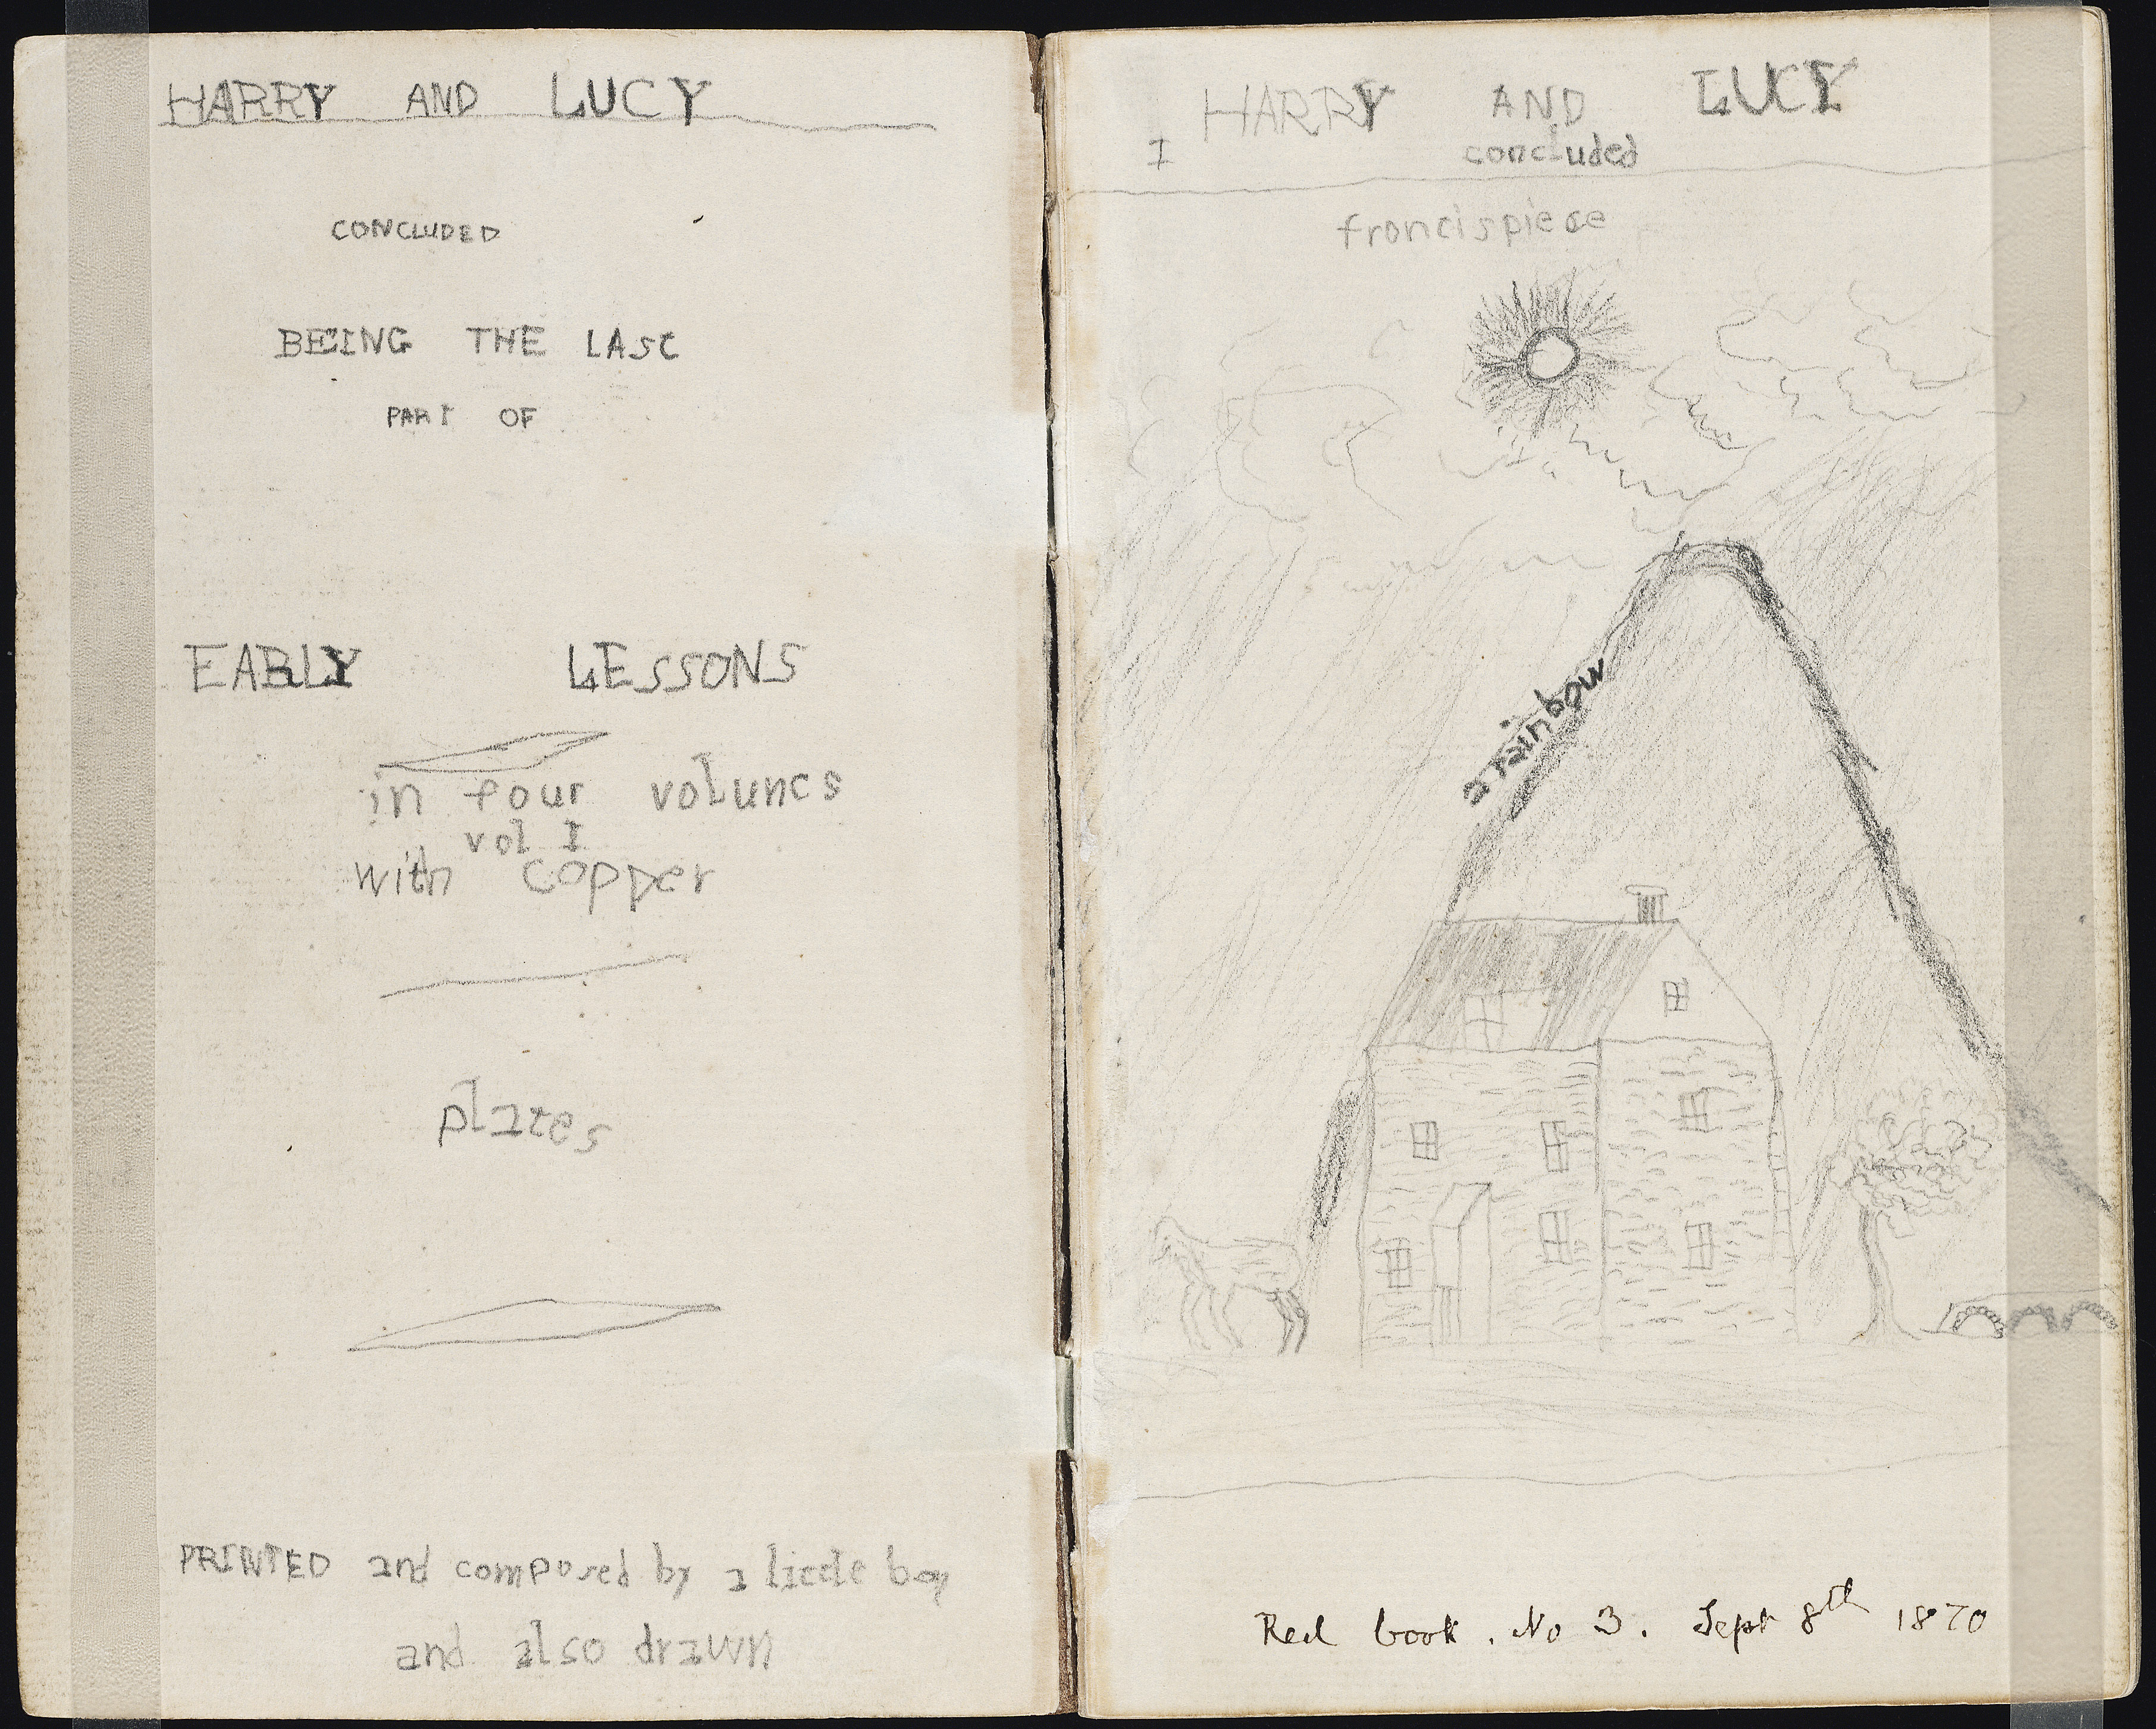 HARRY AND LUCY
CONCLUDED
BEING THE LAST
PART OF
EARLY LESSONS
in four volunes
vol I
with copper
plates
PRINTED and composed by a little boy
and also drawn
HARRY AND LUCY
I concluded
froncispiece
a rainbow
Red book. No 3. Sept 8th 1870